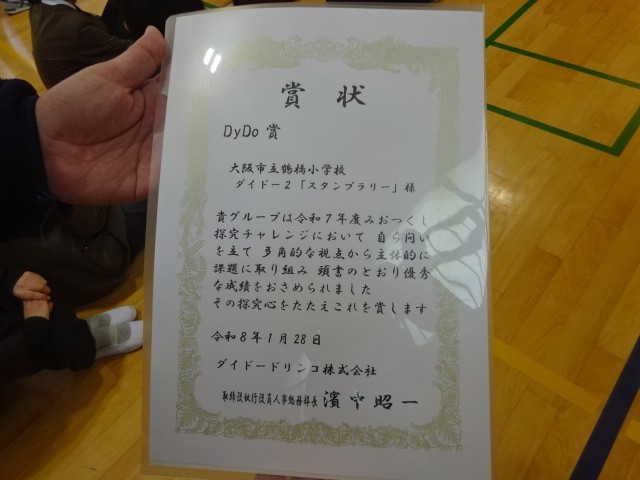 賞状
DyDo 賞
大阪市立鶴橋小学校
ダイドー2「スタンプラリー」様
貴グループは令和7年度みおつくし
探究チャレンジにおいて 自ら問い
を立て 多角的な視点から主体的に
課題に取り組み 頭書のとおり優秀
な成績をおさめられました
その探究心をたたえこれを賞します
令和8年1月28日
ダイドードリンコ株式会社
取締役執行役員人事総務部長 濱中昭一